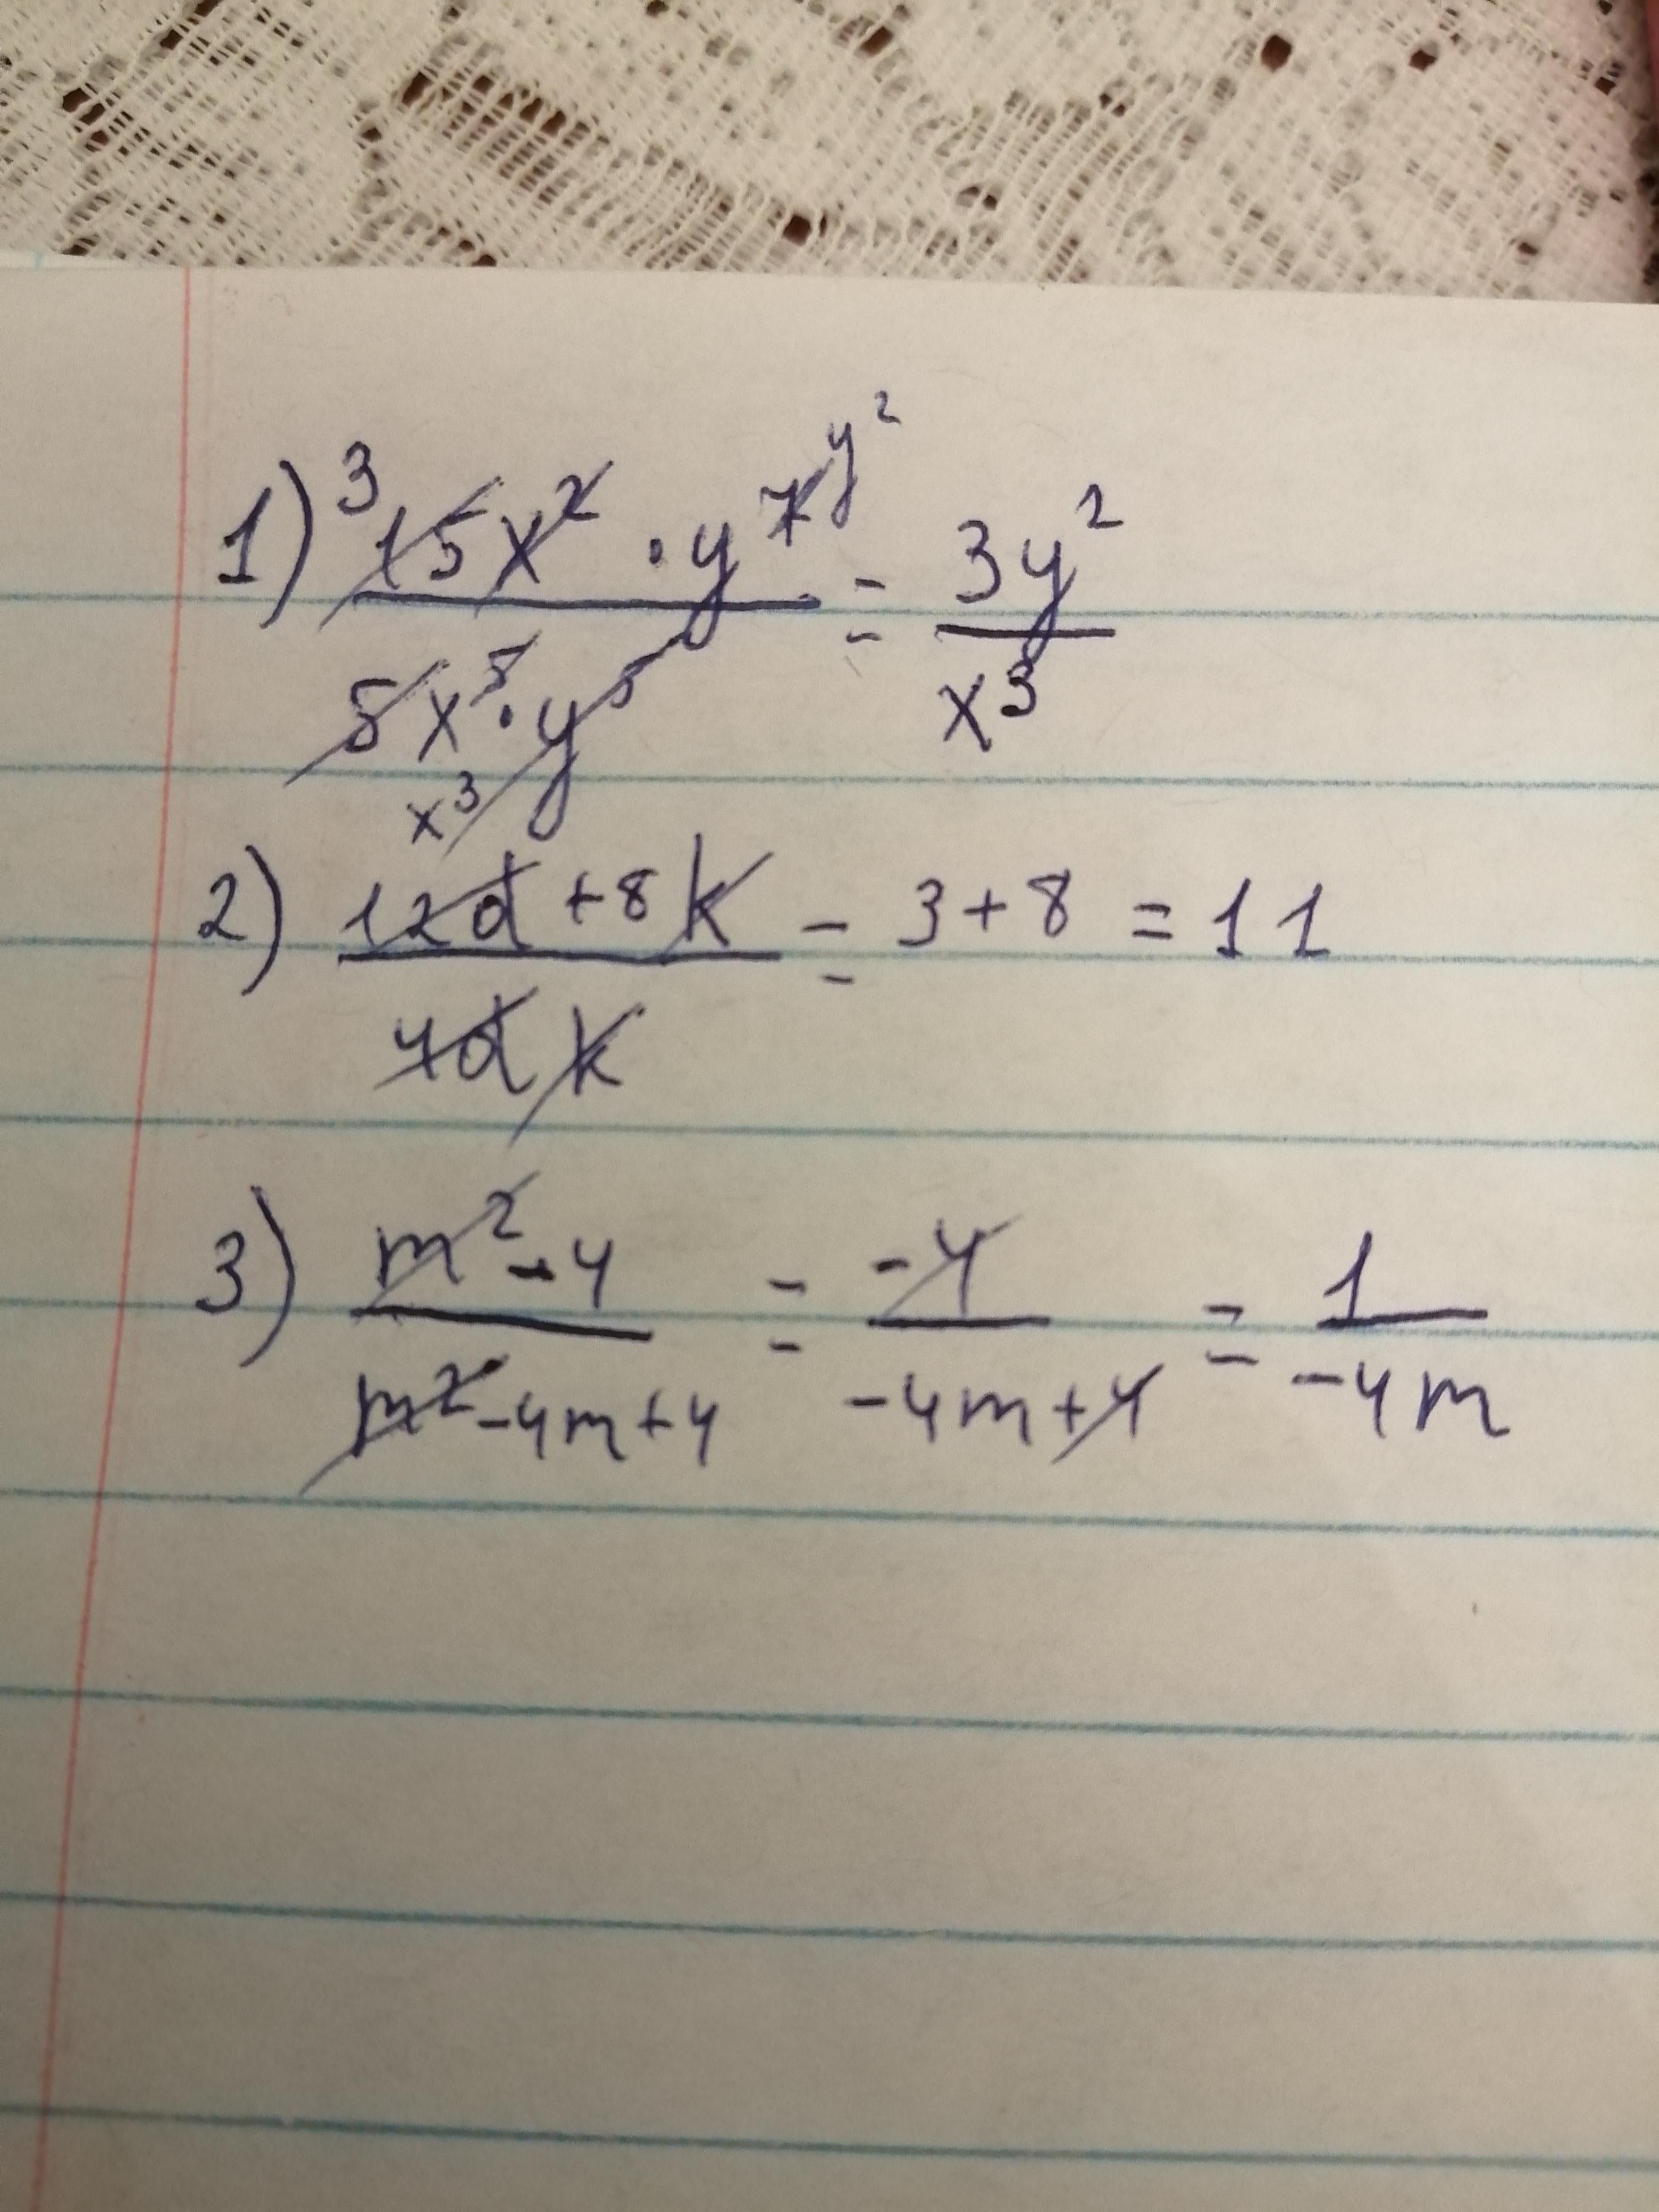 1) ³ 15x² · y⁷ y² / 5x⁵ · y⁵ x³ = 3y² / x³
2) 12d + 8k / 4dk = 3 + 8 = 11
3) m² - 4 / m² - 4m + 4 = -4 / -4m + 4 = 1 / -4m